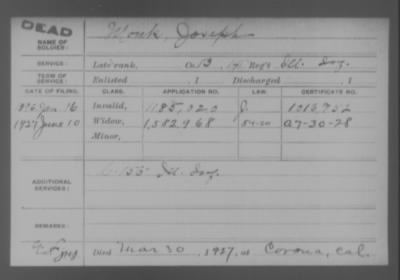 DEAD
NAME OF SOLDIER: Monk, Joseph
SERVICE: Late rank, Co. 13, Reg't Ill. Inf.
TERM OF SERVICE: Enlisted , 1 Discharged , 1
DATE OF FILING. CLASS. APPLICATION NO. LAW. CERTIFICATE NO.
Jan. 16 Invalid, 1185,020 J.
1927 June 10 Widow, 1,582,968 A7-30-28
Minor,
ADDITIONAL SERVICES: 155 Ill. Inf.
REMARKS:
Died Mar 30, 1927, at Corona, Cal.